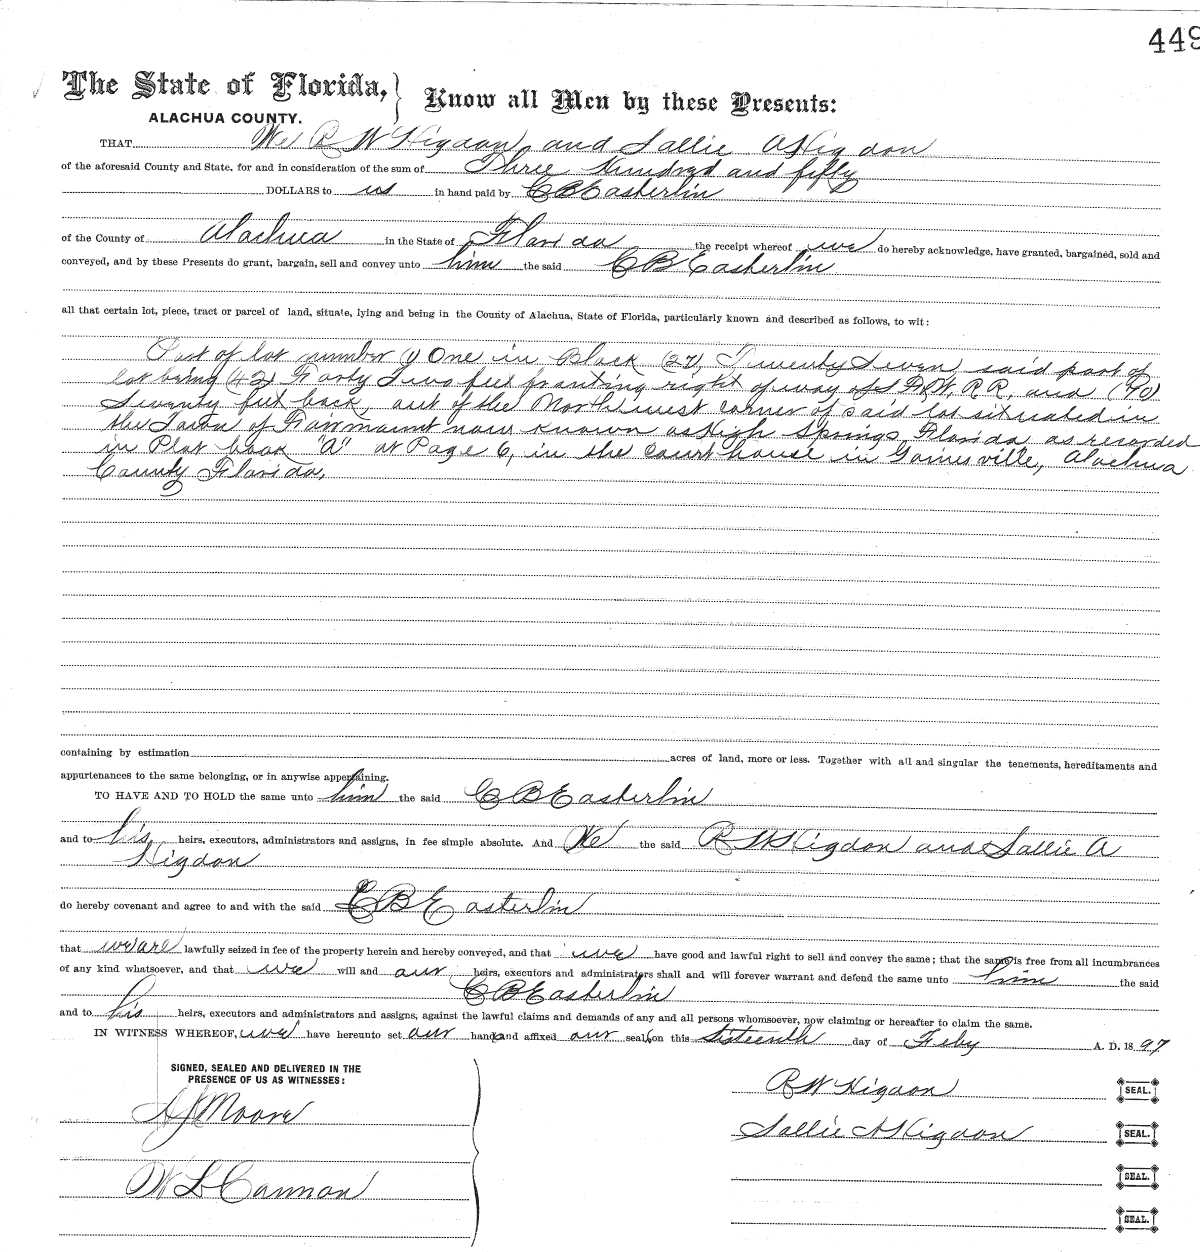 449
The State of Florida, } Know all Men by these Presents:
ALACHUA COUNTY.
THAT We R W Higdon and Sallie A Higdon
of the aforesaid County and State, for and in consideration of the sum of Three Hundred and fifty
DOLLARS to us in hand paid by C B Easterlin
of the County of Alachua in the State of Florida the receipt whereof we do hereby acknowledge, have granted, bargained, sold and
conveyed, and by these Presents do grant, bargain, sell and convey unto him the said C B Easterlin
all that certain lot, piece, tract or parcel of land, situate, lying and being in the County of Alachua, State of Florida, particularly known and described as follows, to wit:
Part of lot number (1) One in Block (27) Twenty Seven, said part of
lot being (42) Forty Two feet fronting right of way of S F & W, R R, and (70)
Seventy feet back, out of the North west corner of said lot situated in
the Town of Fairmount now known as High Springs, Florida as recorded
in Plat book "A" at Page 6, in the Court house in Gainesville, Alachua
County Florida,
containing by estimation acres of land, more or less. Together with all and singular the tenements, hereditaments and
appurtenances to the same belonging, or in anywise appertaining.
TO HAVE AND TO HOLD the same unto him the said C B Easterlin
and to his heirs, executors, administrators and assigns, in fee simple absolute. And We the said R W Higdon and Sallie A
Higdon
do hereby covenant and agree to and with the said C B Easterlin
that we are lawfully seized in fee of the property herein and hereby conveyed, and that we have good and lawful right to sell and convey the same; that the same is free from all incumbrances
of any kind whatsoever, and that we will and our heirs, executors and administrators shall and will forever warrant and defend the same unto him the said
C B Easterlin
and to his heirs, executors and administrators and assigns, against the lawful claims and demands of any and all persons whomsoever, now claiming or hereafter to claim the same.
IN WITNESS WHEREOF, we have hereunto set our hand and affixed our seal on this Sixteenth day of Feby A. D. 1897
SIGNED, SEALED AND DELIVERED IN THE
PRESENCE OF US AS WITNESSES:
R W Higdon SEAL.
A J Moore
Sallie A Higdon SEAL.
SEAL.
W L Cannon
SEAL.